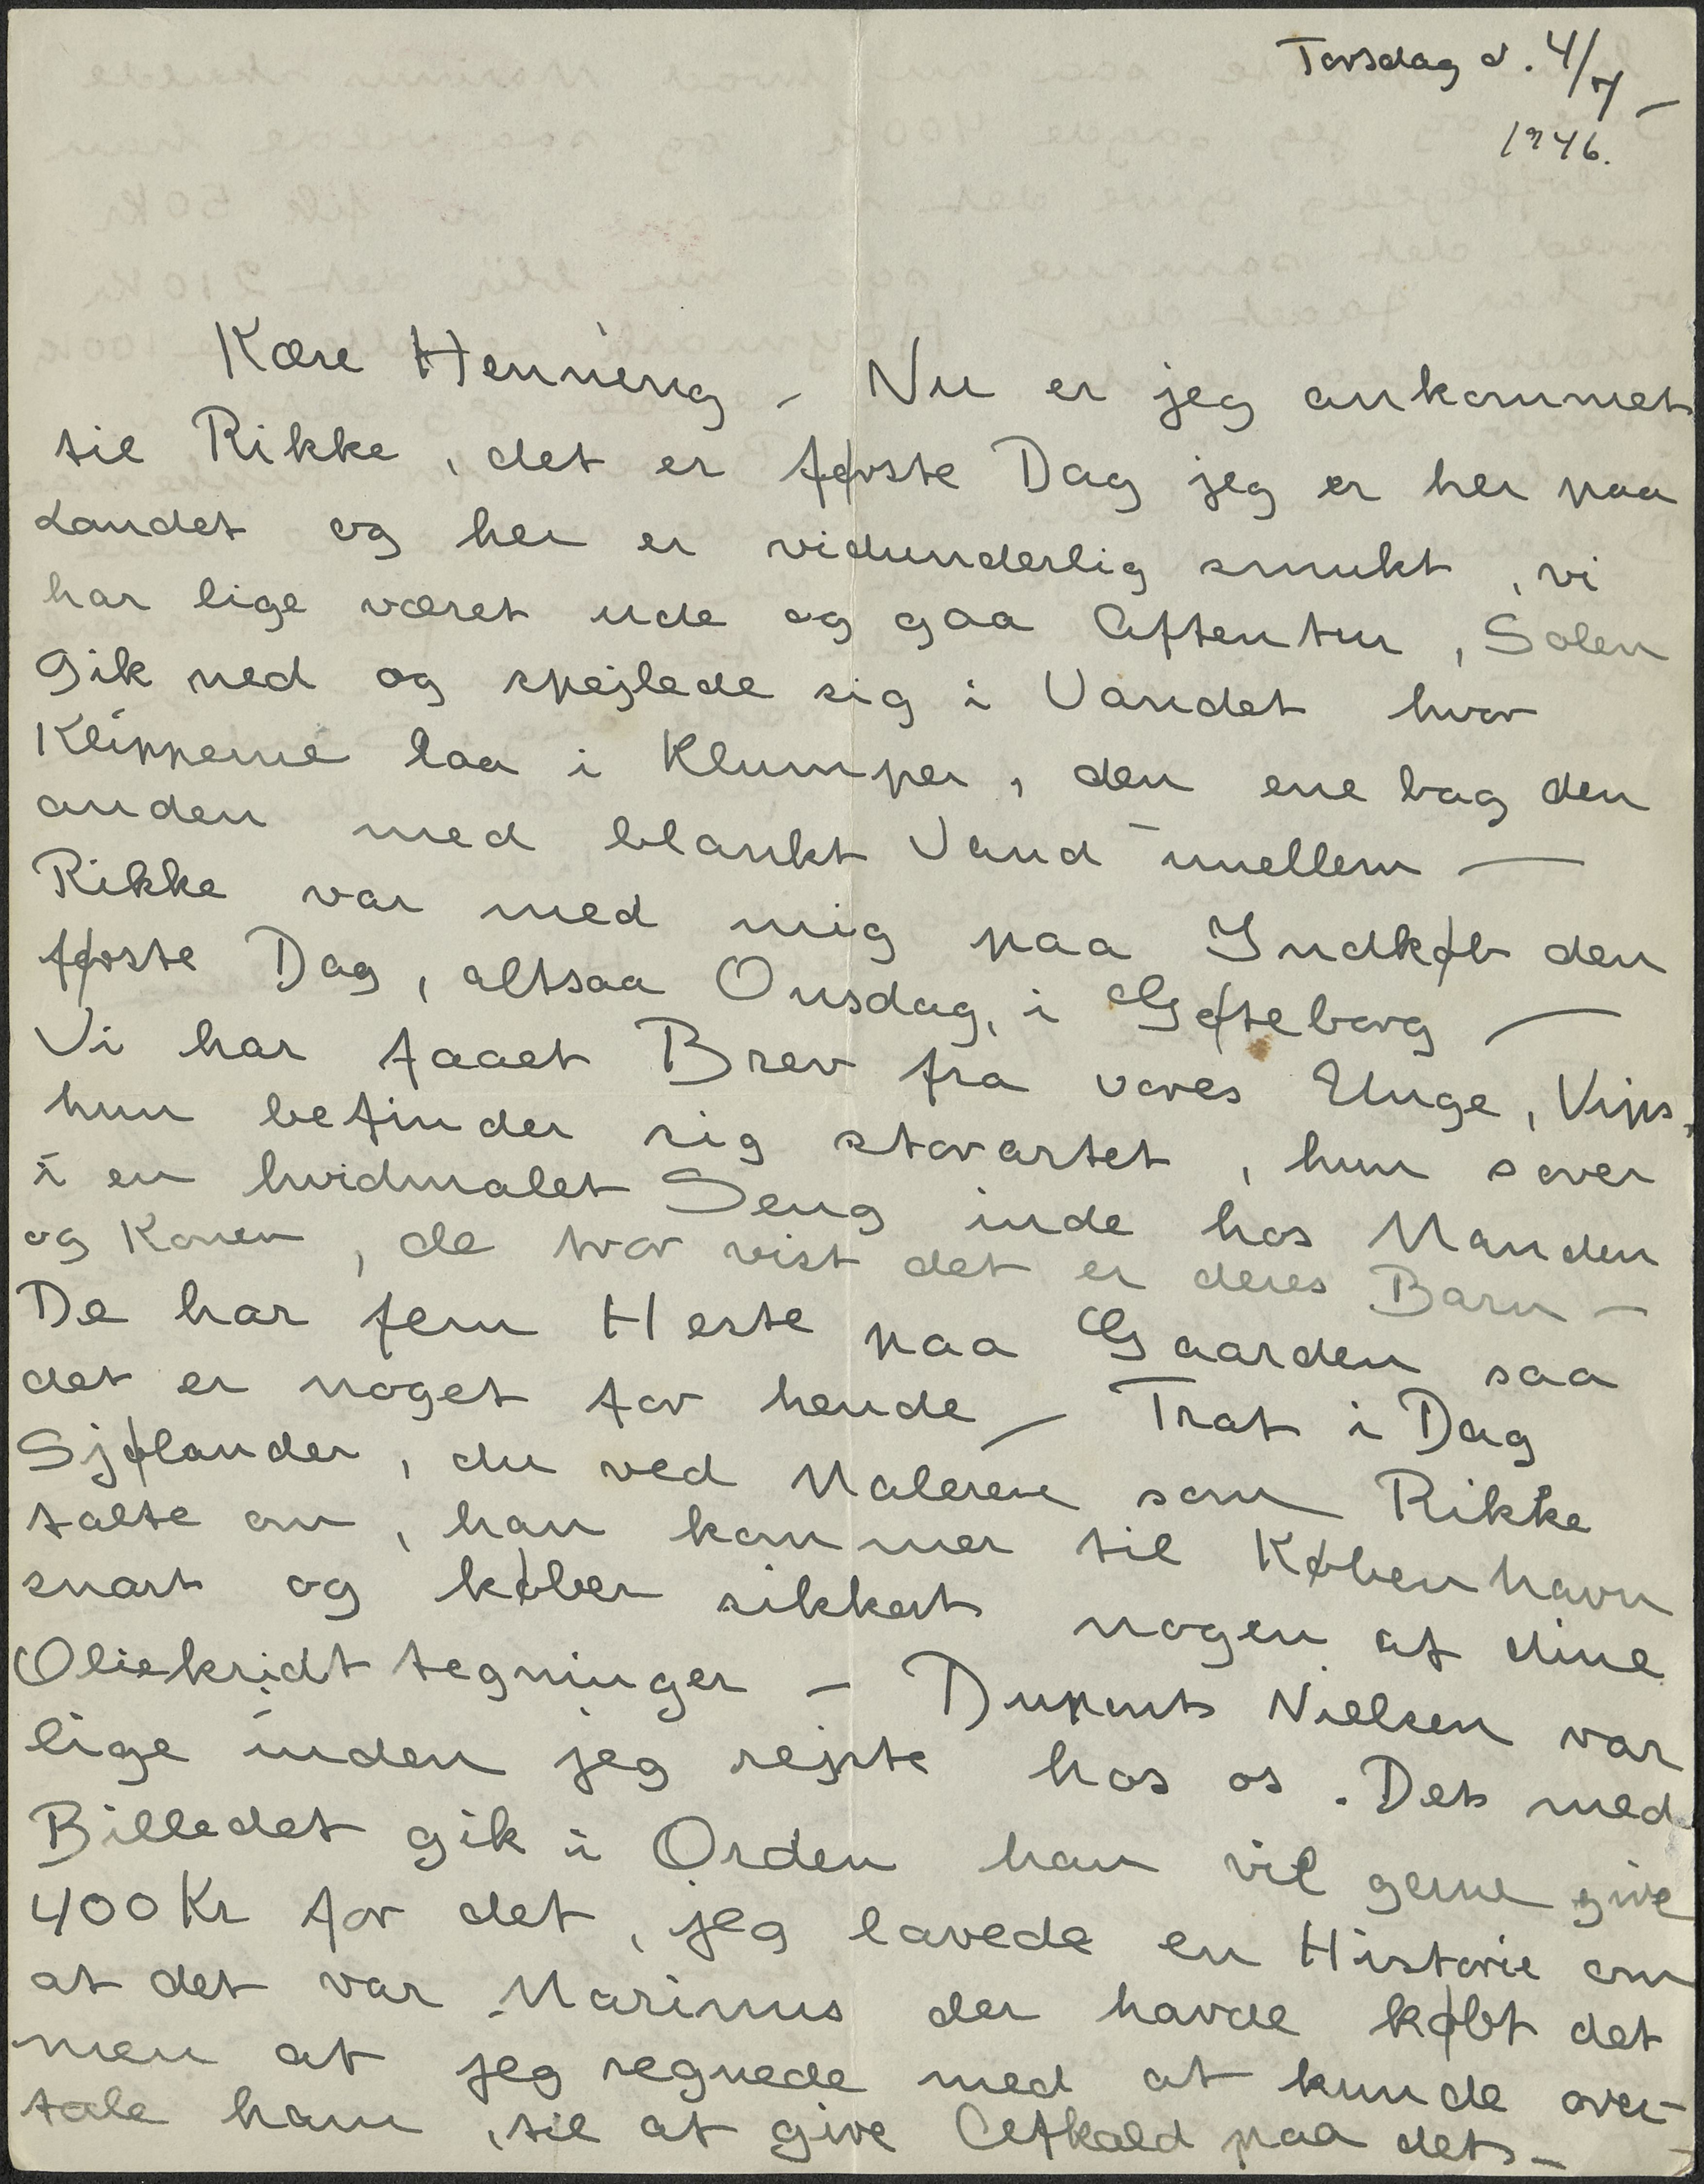 Torsdag d. 4/7 –
1946.
Kære Henning – Nu er jeg ankommet
til Rikke, det er første Dag jeg er her paa
Landet og her er vidunderlig smukt, vi
har lige været ude og gaa Aftentur, Solen
gik ned og spejlede sig i Vandet hvor
Klipperne laa i Klumper, den ene bag den
anden med blankt Vand imellem —
Rikke var med mig paa Indkøb den
første Dag, altsaa Onsdag, i Gøteborg —
Vi har faaet Brev fra vores Unge, Vips,
hun befinder sig storartet, hun sover
i en hvidmalet Seng inde hos Manden
og Konen, de tror vist det er deres Barn –
De har fem Heste paa Gaarden saa
det er noget for hende – Traf i Dag
Sjølander, du ved Maleren som Rikke
talte om, han kommer til København
snart og køber sikkert nogen af dine
Oliekridt tegninger – Duponts Nielsen var
lige inden jeg rejste hos os. Det med
Billedet gik i Orden han vil gerne give
400 Kr for det, jeg lavede en Historie om
at det var Marinus der havde købt det
men at jeg regnede med at kunde over-
tale ham, til at give Afkald paa det –